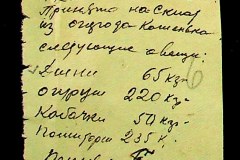 Принято на склад
из огорода Кошенька
следующие овощи:
Дыни 65 кг-
огурци 220 кг-
Кабачки 50 кг-
Помидоры 235 к.